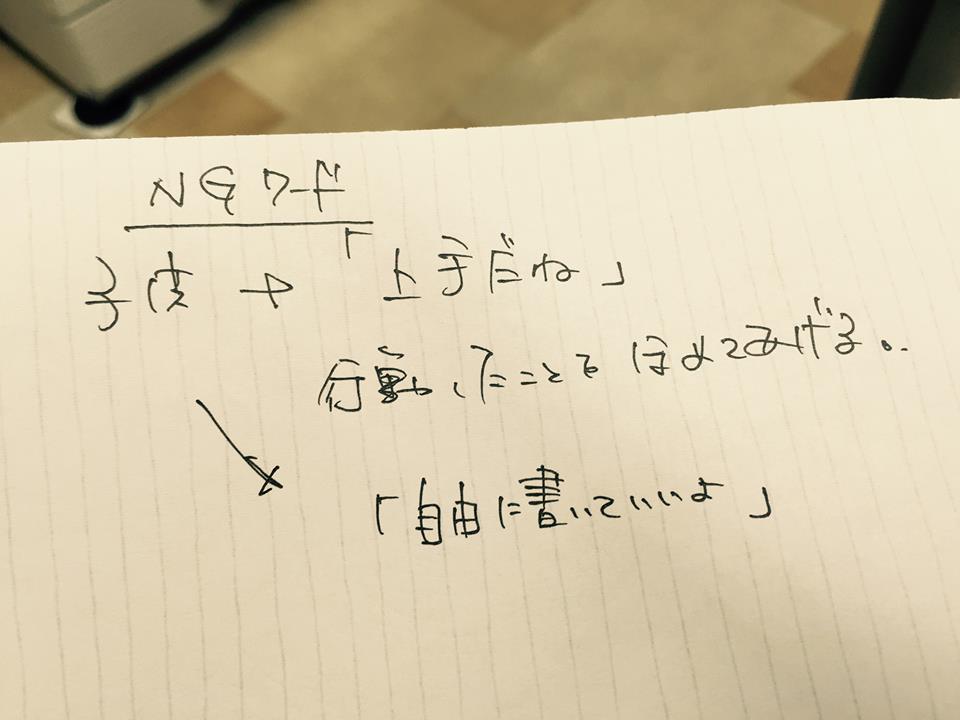 NGワード
子供→「上手だね」
行動したことをほめてあげる。
「自由に書いていいよ」